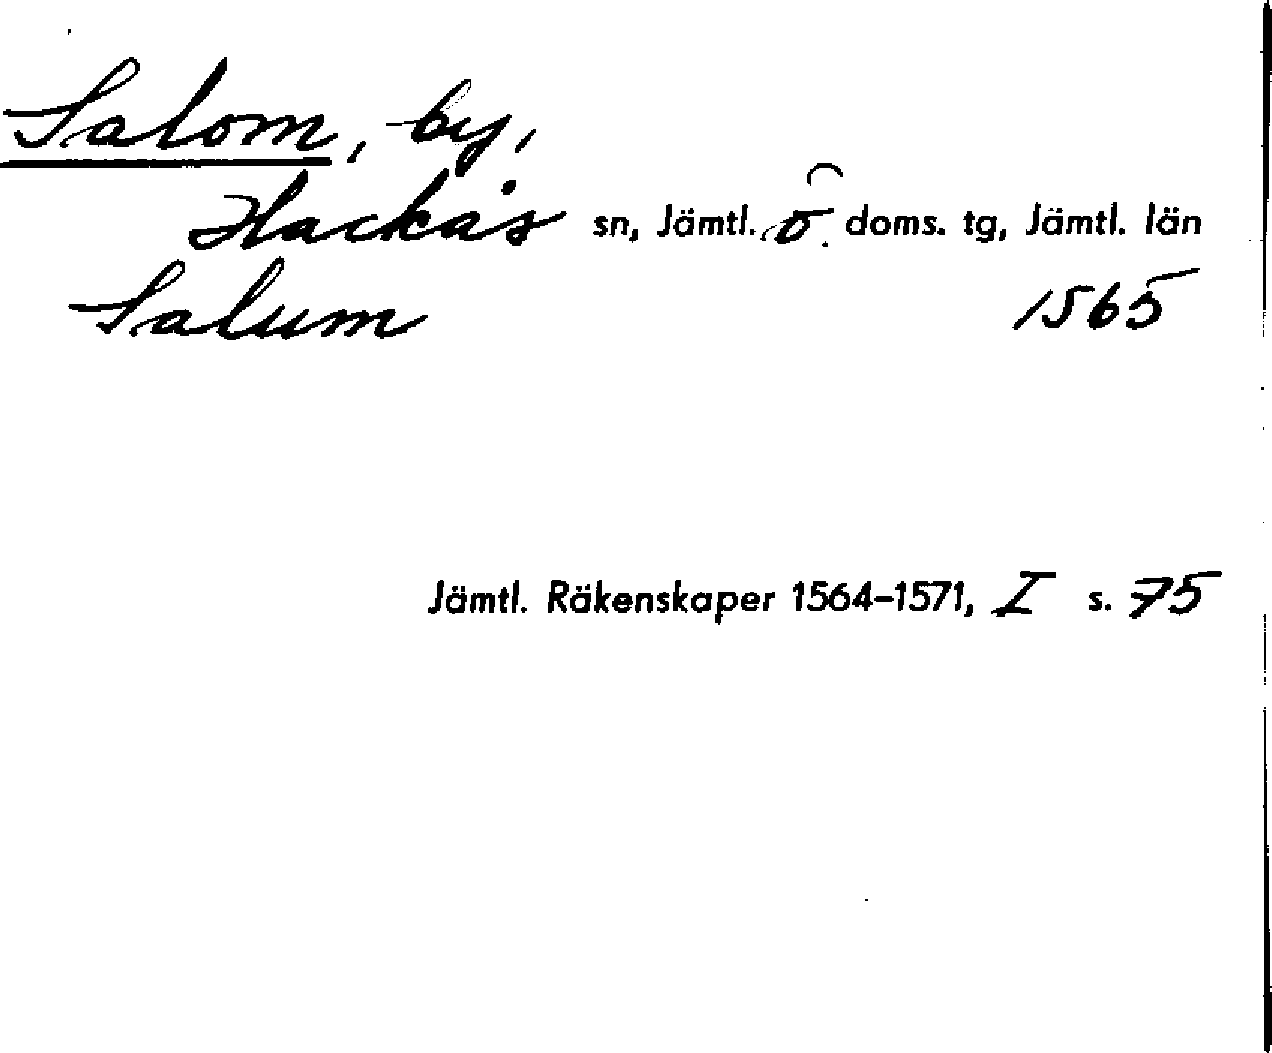 Salom, by,
Hackås sn, Jämtl. ö. doms. tg, Jämtl. län
Salum 1565
Jämtl. Räkenskaper 1564–1571, I s. 75